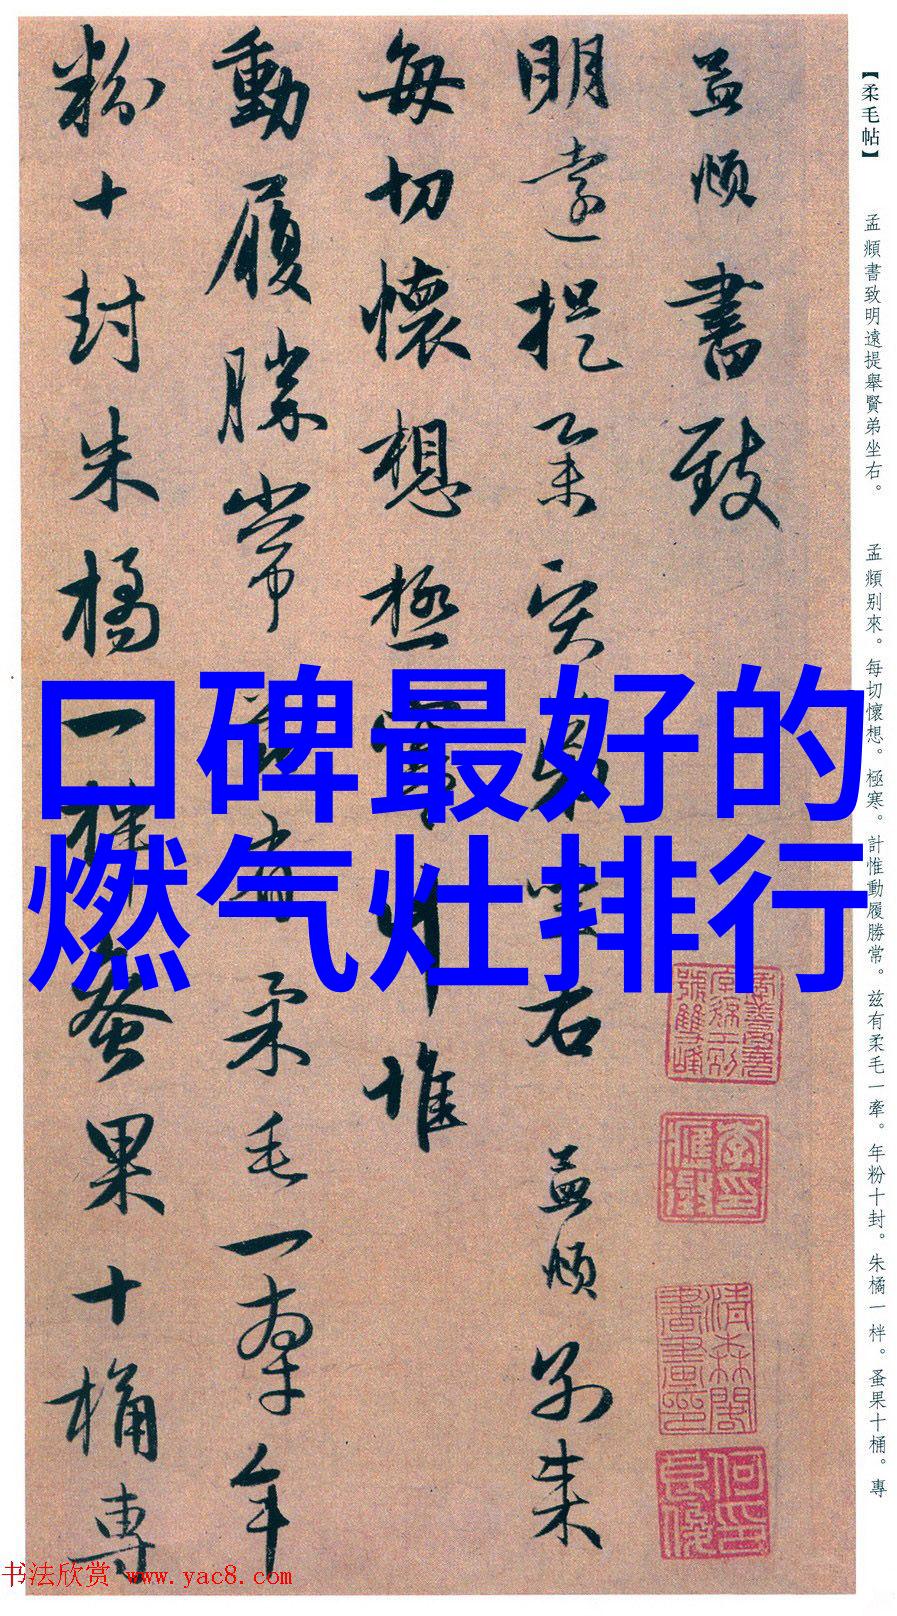 【柔毛帖】
孟頫書致明遠提舉賢弟坐右。
孟頫别來。每切懷想。極寒。計惟動履勝常。兹有柔毛一牽。年粉十封。朱橘一柈。蚤果十桶。專
孟頫書致
明遠提舉賢弟坐右 孟頫别來
每切懷想極寒計惟
動履勝常兹有柔毛一牽年
粉十封朱橘一柈蚤果十桶專
口碑最好的
燃气灶排行
书法欣赏 www.yac8.com